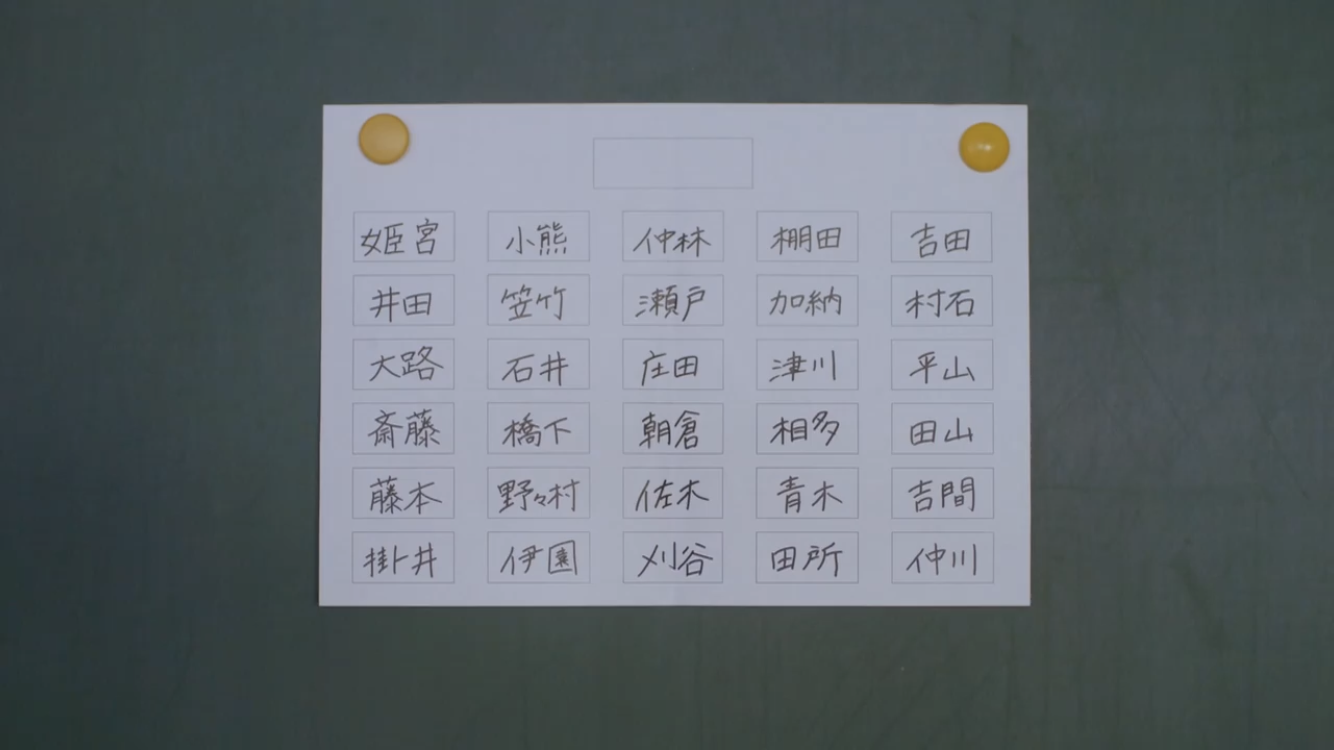 姫宮 小熊 仲林 棚田 吉田
井田 笠竹 瀬戸 加納 村石
大路 石井 庄田 津川 平山
斎藤 橋下 朝倉 相多 田山
藤本 野々村 佐木 青木 吉間
掛井 伊園 刈谷 田所 仲川